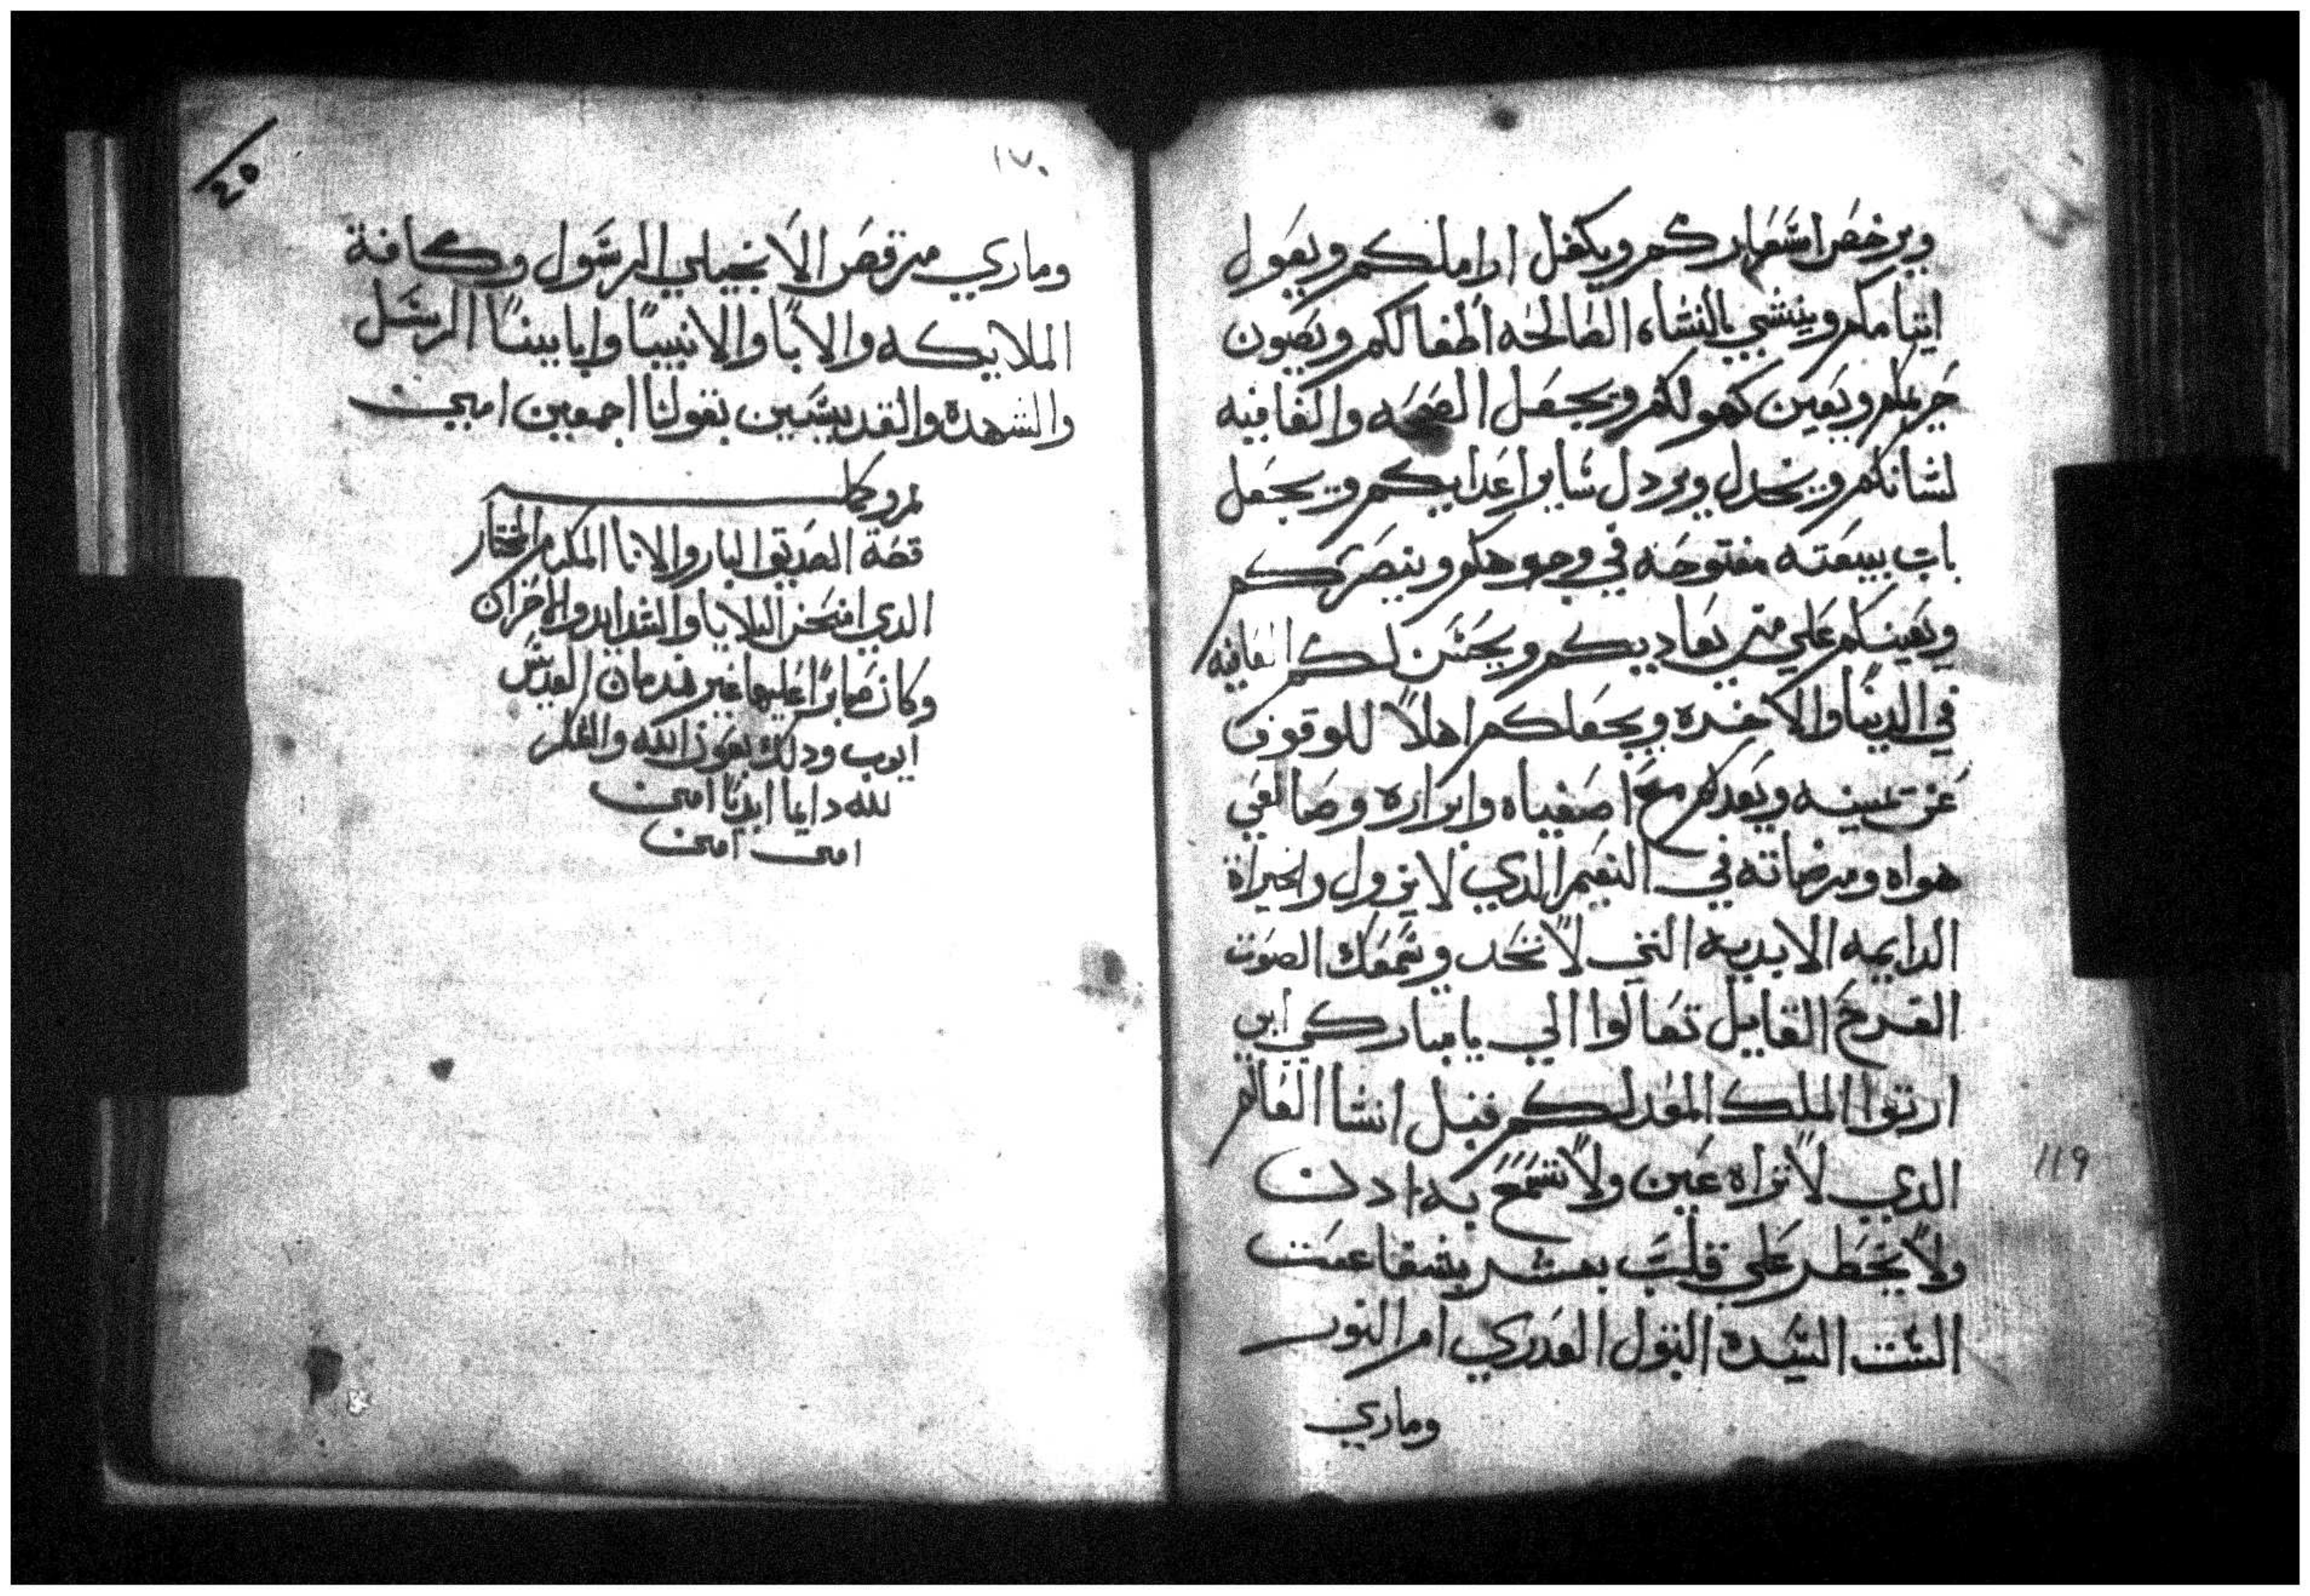 ويرخص اسعاركم ويكفل اراملكم ويعول
ايتامكم وينشي بالنشاه الصالحه اطفالكم ويصون
حريمكم ويعين كهولكم ويجعل الصحه والعافيه
لشانكم ويخدل ويردل ساير اعدايكم ويجعل
باب بيعته مفتوحه في وجوهكم وينصركم
ويعينكم علي من يعاديكم ويحسن لكم العاقبه
في الدنيا والاخره ويجعلكم اهلاً للوقوف
عن يمينه ويعدكم مع اصفياه وابراره وصانعي
هواه ومرضاته في النعيم الدي لا يزول والخيراة
الدايمه الابديه التي لا تحد وسمعك الصوت
الفرح القايل تعالوا الي يا مباركي ابي
ارتوا الملك المعد لكم قبل انشا العالم
الدي لا تراه عين ولا تسمع به ادن
ولا يخطر علي قلب بشر بشفاعت
الست السيده البتول العدري ام النور
وماري
119
١٧٠
٤٥
وماري مرقص الانجيلي الرسول وكافة
الملايكه والابا والانبيا وابايينا الرسل
والشهده والقديسين بقولنا اجمعين امين
قصة الصديق البار والانا المكرم المختار
الدي امتحن البلايا والشدايد والاحزان
وكان صابراً عليها غير ندمان القديس
ايوب ودلك بعون الله والشكر
لله دايما ابديا امين
امين امين